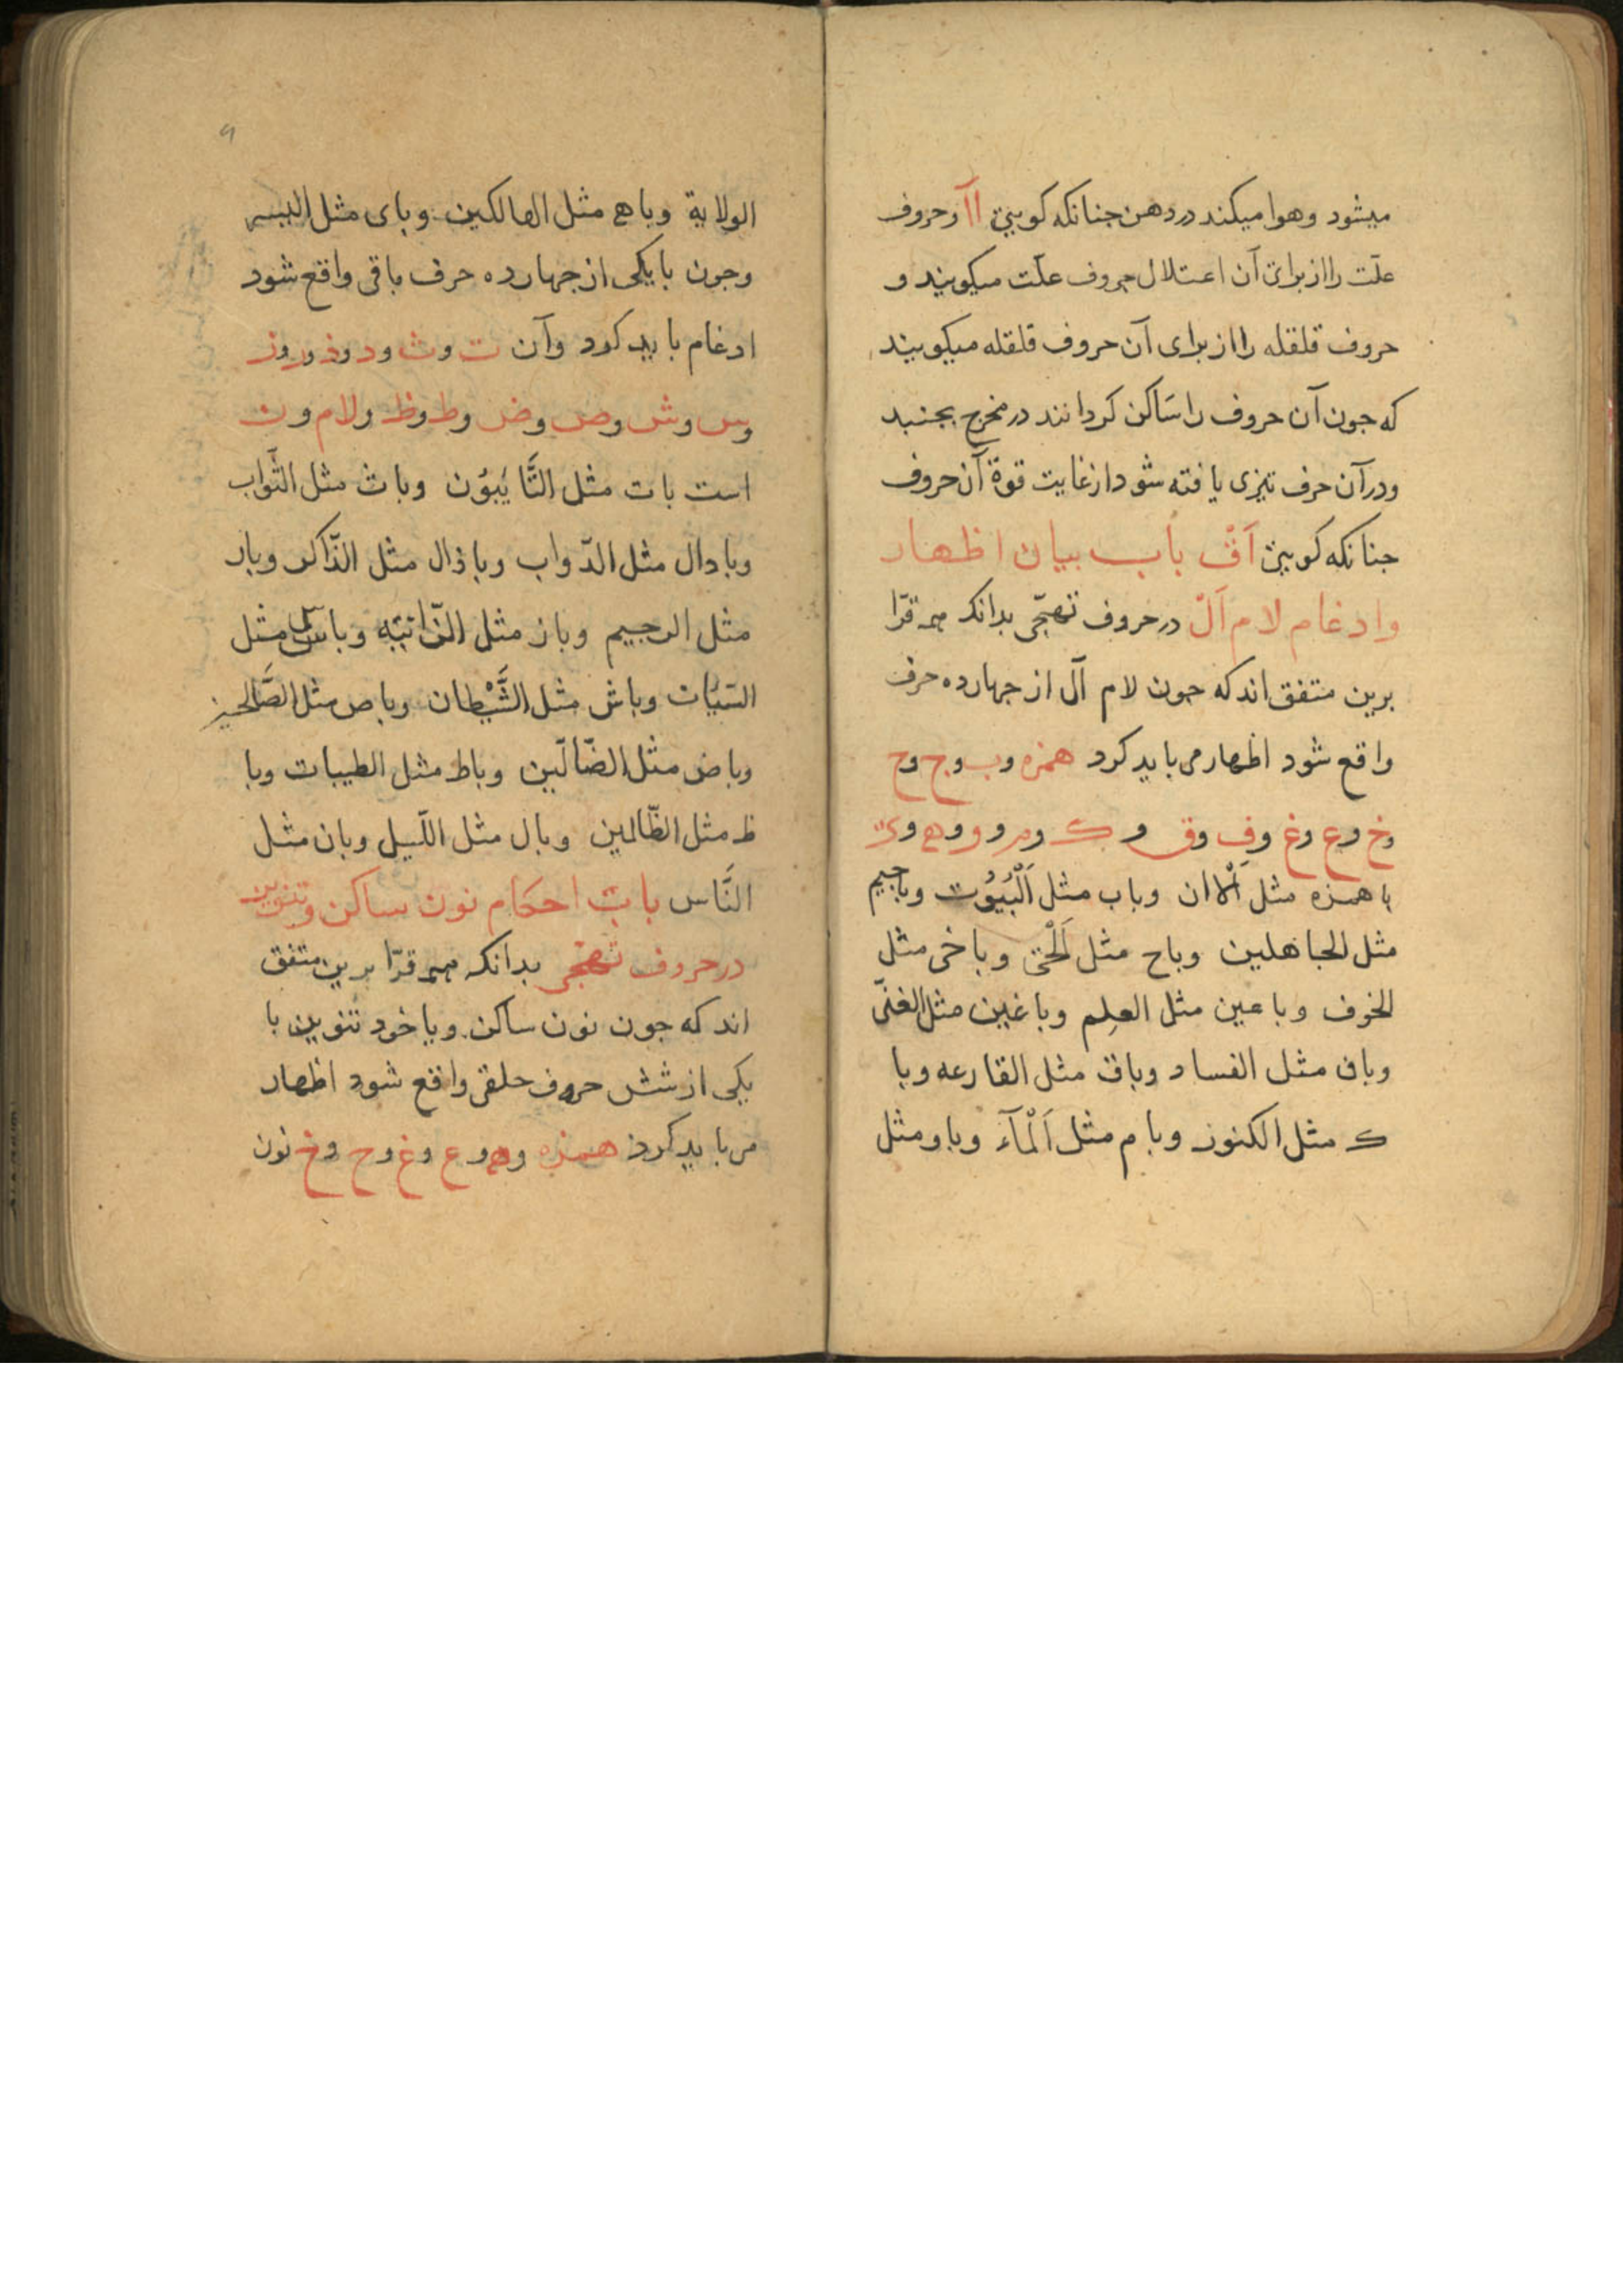 میشود وهوا میکند در دهن جنانکه کویئ اآ وحروف
علّت را از برائ آن اعتلال حروف علّت میکویند و
حروف قلقله را از برای آن حروف قلقله میکویند
که جون آن حروف را سَاکن کردانند در مخرج بجنبد
ودرآن حرف تیزی یافته شود از غایت قوة آن حروف
جنانکه کویئ اَقْ باب بیان اظهار
وادغام لام اَلْ در حروف تهجّی بدانکه همه قرّا
برین متفق اند که جون لام آل از جهارده حرف
واقع شود اظهار می باید کرد همزه وب وج وح
وخ وع وغ وف وق و ک وم و و وه وی
با همزه مثل اَلْاان وباب مثل اَلْبُیُوت وباجیم
مثل الجاهلین وباح مثل اَلْحَق وباخی مثل
الخوف وباعین مثل العِلِم وباغین مثل الغنّی
وباف مثل الفساد وباق مثل القارعه وبا
ک مثل الکنوز وبام مثل اَلْمآء وباو مثل
۹
الولایة وباه مثل الهالکین وبای مثل الیسر
وجون با یکی از جهارده حرف باقی واقع شود
ادغام باید کرد وآن ت وث ود وذ ور وز
وس وش وص وض وط وظ ولام ون
است بات مثل التَّایَبُوَن وباث مثل الثَّواب
وبادال مثل الدّواب وباذال مثل الذّاکر وبار
مثل الرجیم وباز مثل الزّانیَه وباس مثل
السَیّات وباش مثل الشَّیْطان وباص مثل الصَّالحین
وباض مثل الضّالّین وباط مثل الطیبات وبا
ظ مثل الظّالمین وبال مثل اللّیل وبان مثل
النَّاس باب احکام نون ساکن وتنوین
در حروف تهجّی بدانکه همه قرّا برین متفق
اند که جون نون ساکن ویا خود تنوین با
یکی از شش حروف حلقی واقع شود اظهار
می باید کرد همزه وه وع وغ وح وخ نون